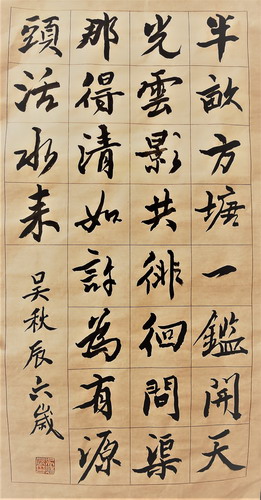 半畝方塘一鑑開天
光雲影共徘徊問渠
那得清如許為有源
頭活水来
吴秋辰六歲